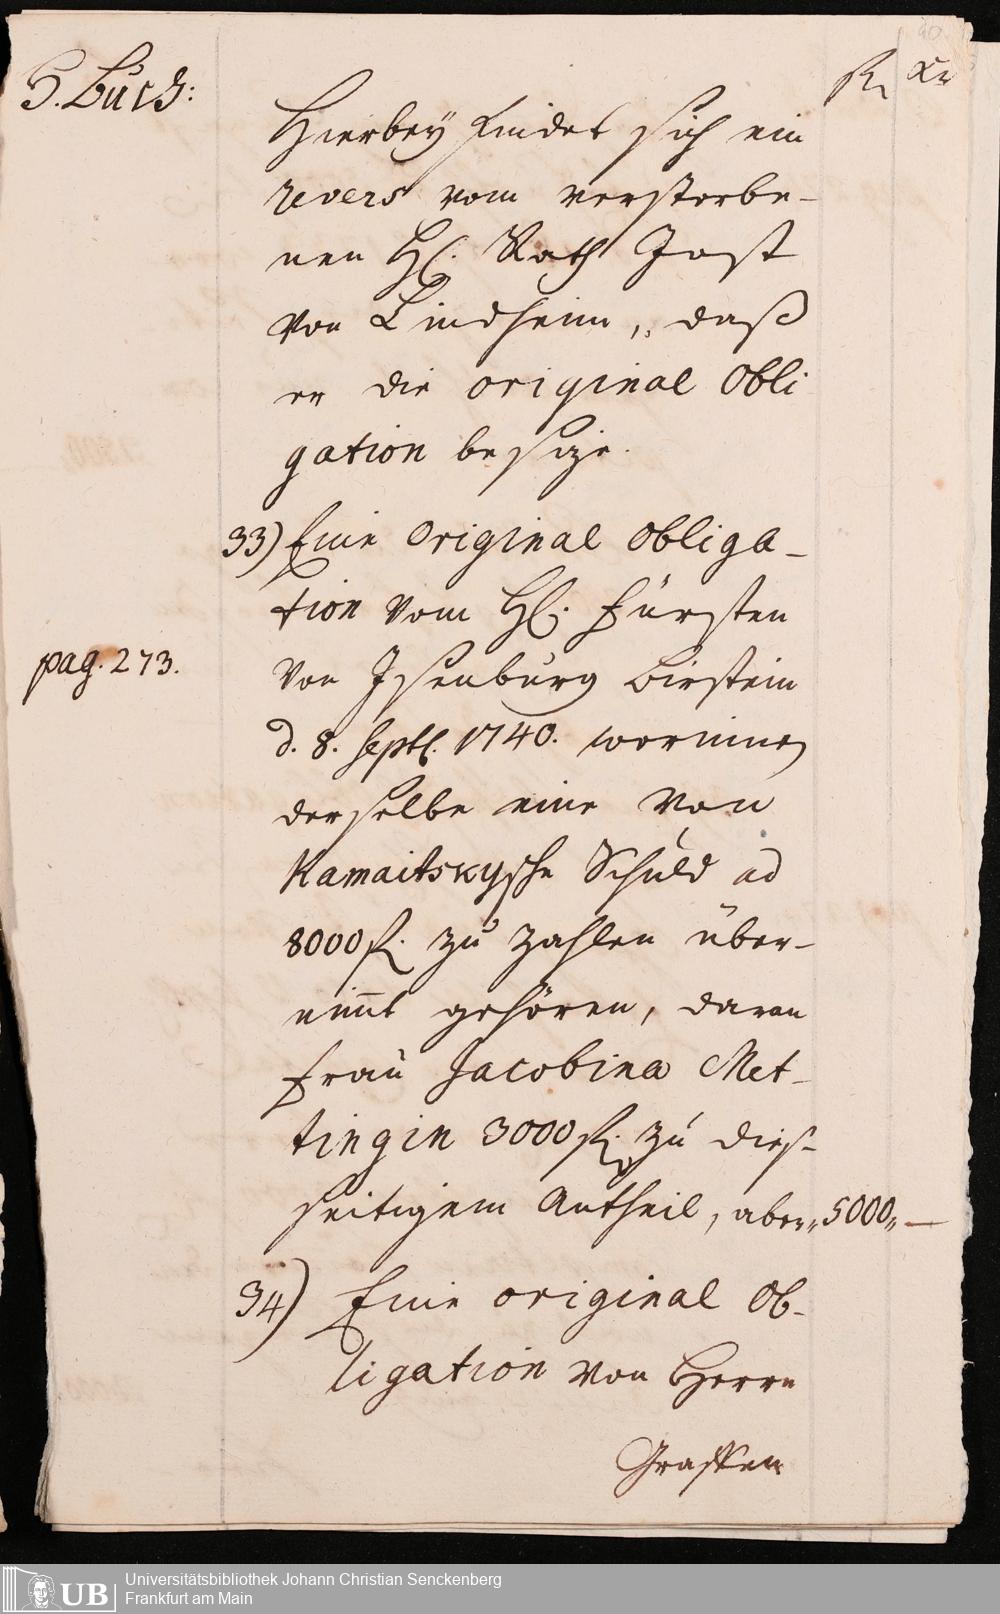 S. Buch:
fl. Kr
Hierbey findet sich ein
revers vom verstorbe-
nen H. Rath Jost
von Lindheim, „daß
er die original Obli
gation besize.
33) Eine Original Obliga-
tion vom H. Fürsten
pag. 273.
von Isenburg Birstein
d. 8. Septl. 1740. worinnen
derselbe eine von
Kamaitskysche Schuld ad
8000 fl. zu zahlen über-
nim̄t gehören, daran
Frau Jacobina Met-
tingin 3000 fl. zu dies-
seitigem Antheil, aber „5000„ —
34) Eine original Ob-
ligation von Herrn
Graffen
Universitätsbibliothek Johann Christian Senckenberg
UB
Frankfurt am Main